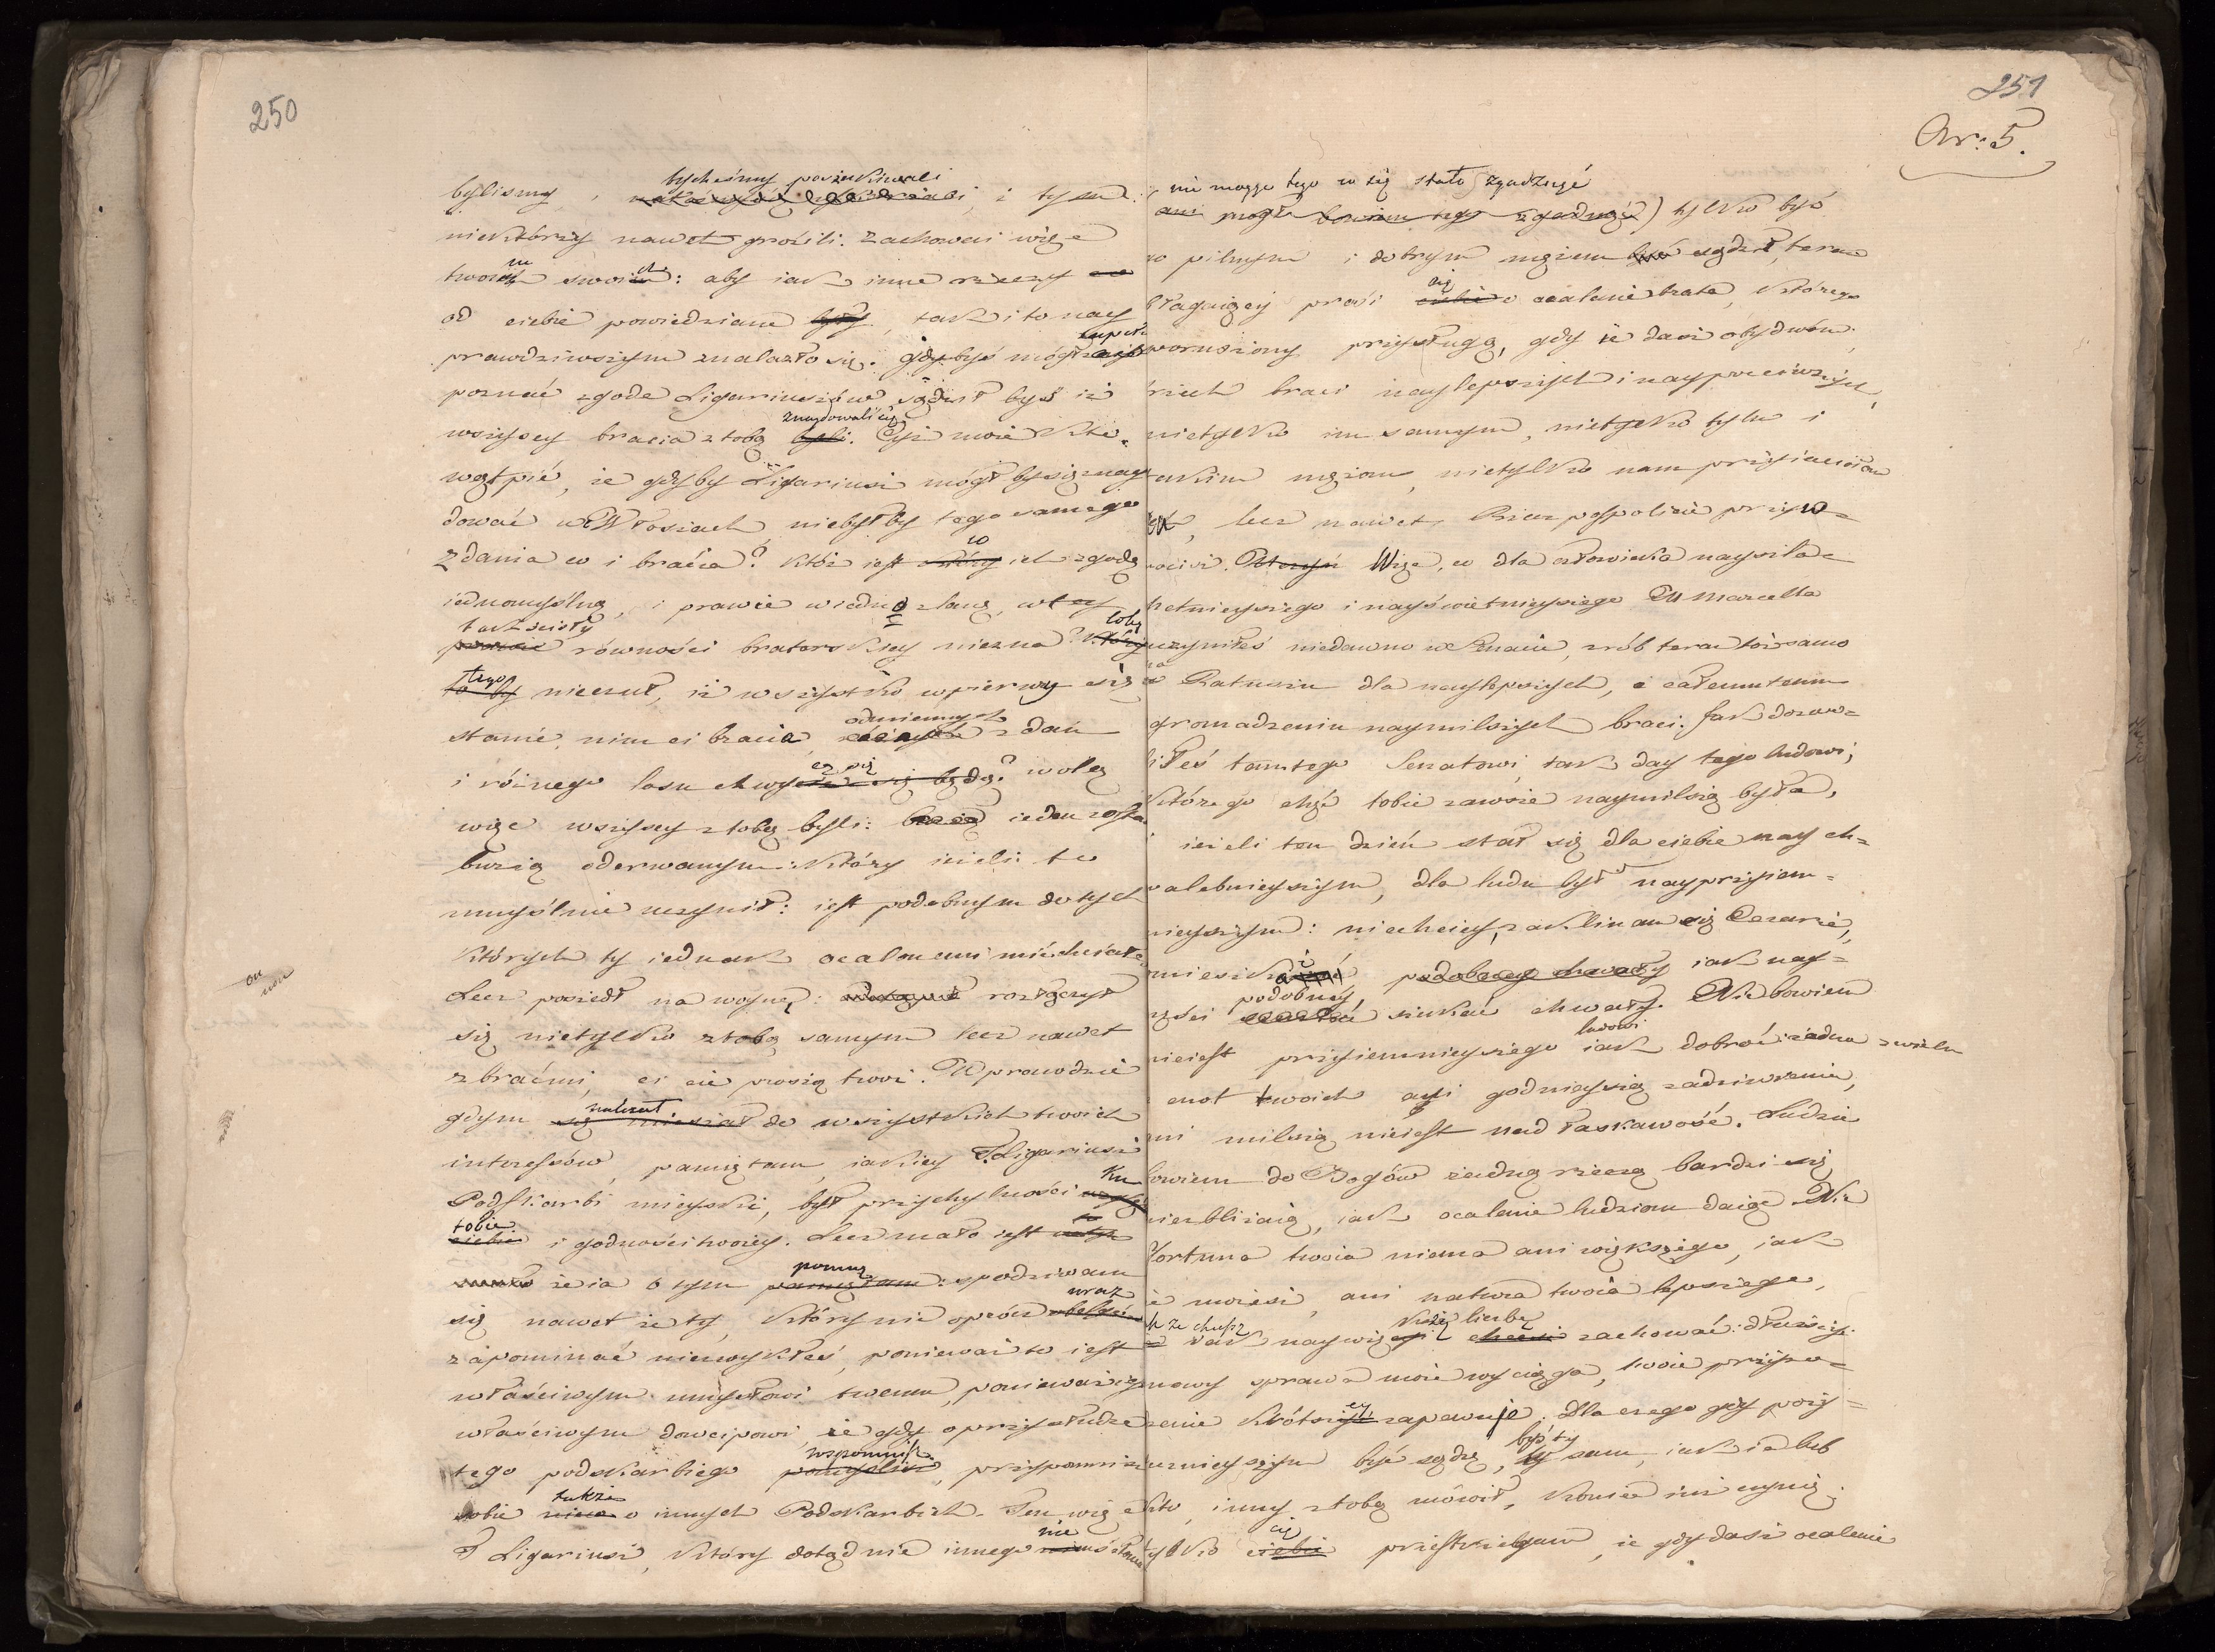 250
bylismy, tycheśmy poszukiwali i tym
niektórzy nawet grozili. Zachowai więc
twoim swoich: aby iak inne rzeczy
od ciebie powiedziane były, tak i to nay
prawdziwszym znalazło się. gdybyś mógł zupeł
poznać zgode Ligariuszów, sądził byś iż
wszyscy bracia z tobą byli znaydowali się. Czyż może kto
wątpić, że gdyby Ligariusz mógł by się znay
dować w Włoszach niebyłby tego samego
zdania co i bracia? Któż jest który co ich zgodę
iednomyślną, i prawie w iedno zlaną, w tey
prawie tak ścisły równości braterskiey niezna? któryby
to by tego nieczuł, iż wszystko wpierwey się
stanie, nim ci bracia, odmiennych zdań
i różnego losu chwycą się będą? wolą
więc wszyscy z tobą byli: ieden został
burzą oderwanym: który ieżeli to
umyślnie uczynił: jest podobnym do tych
których ty iednak ocalonemi mieć chciałeś
on
Lecz poszedł na woynę: rozłączył
się nietylko z tobą samym lecz nawet
z braćmi, ci cie proszą twoi. Wprawdzie
gdym należał do wszystkich twoich
interessów, pamiętam, iakiey T. Ligariusz
Podskarbi mieyski, był przychylności ku
tobie ciebie i godności twoiey. Lecz mało jest
że ia o tym pamiętam pomnę: spodziewam
się nawet że ty, który nic oprócz uraz
zapominać niezwykłeś, ponieważ to jest
właściwym umysłowi twemu, ponieważ iest
właściwym dowcipowi, że gdy o przysłudze
tego podskarbiego pomyślisz wspomnisz, przypomnisz
sobie także o innych Podskarbich. Ten więc
T Ligariusz, który dotąd nic innego nie
251
Ar: 5.
nie mogąc tego co się stało zgadnąć
ani mógł bowiem tego zgadnąć) tylko być
co pilnym i dobrym mężem być sądził, teraz
błagaiący prosi cię ciebie o ocalenie brata, którego
poruszony przysługą, gdy ie dasz obydwóm,
trzech braci naylepszych i naypoczciwszych,
nietylko im samym, nietylko tylu i
takim mężom, nietylko nam przyiaciołom
lecz nawet, Rzeczypospolitéy przyw=
rócisz. Więc, co dla człowieka nayszla=
chetnieyszego i nayświetnieyszego M Marcella
uczyniłeś niedawno w Senacie, zrób teraz toż samo
na Ratuszu dla naylepszych, i całemu temu
zgromadzeniu naymilszych braci. Jak dozwo=
liłeś tamtego Senatowi, tak day tego ludowi,
którego chęć tobie zawsze naymilszą była,
i ieżeli ten dzień stał się dla ciebie naych=
walebnieyszym, dla ludu był nayprzyiem=
nieyszym: niechciey, zaklinam cię Cezarze,
podobney chwały iak nay=
częściey podobnéy, szukać chwały. Nic bowiem
nieiest przyiemnieyszego ludowi iak dobroć: żadna z wielu
cnot twoich ani godnieyszą zadziwienia,
ani milszą nieiest nad łaskawość. Ludzie
bowiem do Bogów żadną rzeczą bardzi się
niezbliżaią, iak ocalenie ludziom daiąc Nic
fortuna twoia niema ani większego, iak
że możesz, ani natura twoia lepszego,
iak że chcesz iak naywiększą liczbę zachować: dłuższéy
mowy sprawa może wyciąga, twoie przyro=
dzenie krótszéy zapewnie. Dla czego gdy poży=
tecznieyszym być sądzę, byś ty sam, iak ia lub
kto, inny z tobą mówił, koniec iuż czynię:
tylko cię ciebie przestrzegam, że gdy dasz ocalenie